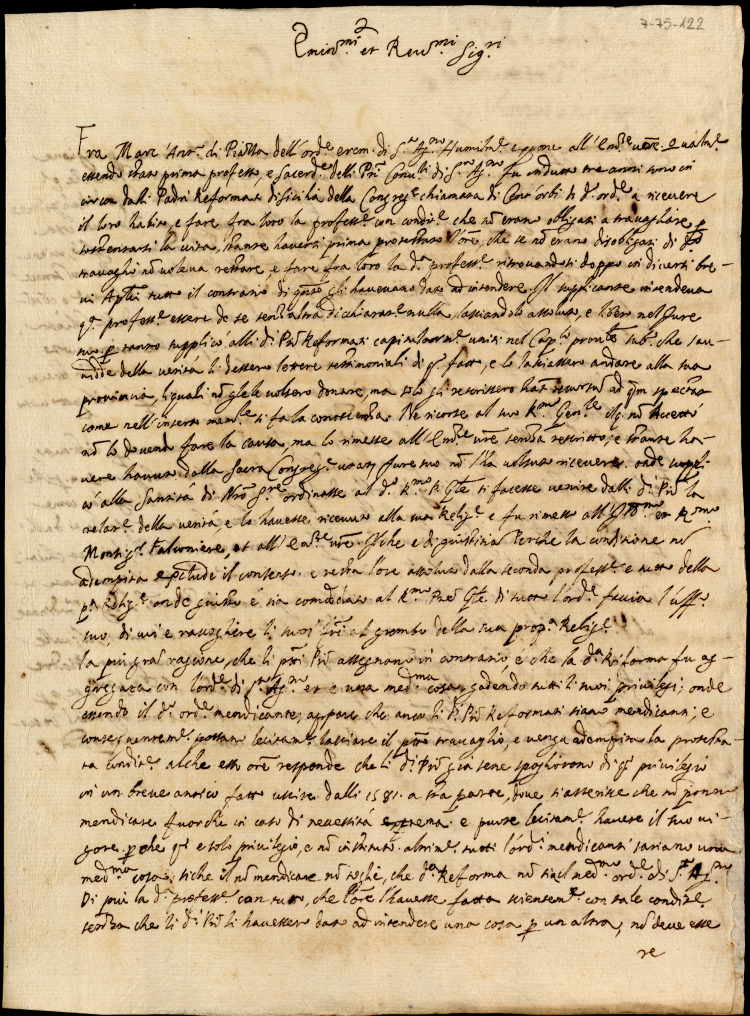 7-75-122
2
Emin.mi et Reu.mi Sig.ri
Fra Marc' Ant.o di dell'ord.e erem. di S.to Ag.no Humilm.e espone all'Em.ze v.re
essendo stato prima professo, e Sacerd.e delli P.ri Conu.li di S.to Ag.no fu indutto tre anni sono in
circa dalli Padri Reformati di Sicilia della Congreg.e chiamata di Cent'orbi di d.o ord.e a riceuere
il loro habito, e fare fra loro la profess.e con condit.e che nõ erano obligati a trauagliare p
sostentarsi la uita, stante hauersi prima protestato l'ore, che se nõ erano disobligati di q.to
trauaglio nõ uoleua restare, e fare fra loro la d.a profess.e ritrouandosi doppo in diuersi bre-
ui Ap.lici tutto il contrario di q.sto gli haueuano dato ad intendere. Il supplicante intendeua
q.a profess.e essere de se senz'altra dichiarat.e nulla, lasciandolo assoluto, e libero nel
supplicò alli d.i P.ri Reformati capitularm.e uniti nel Cap.lo che
della uerità li dessero lettere testimoniali di q.o fatto, e lo lasciassero andare alla sua
prouincia, liquali nõ glele uolsero donare, ma solo gli rescrissero
come nell'inserto mem.le si fa la conoscenza. Ne ricorse al suo R.mo Gen.le
nõ lo douendo fare la causa, ma lo rimesse all'Em.ze v.re senza rescritto; e stante ha-
uere hauuto dalla Sacra Congreg.e nõ l'ha uolsuto riceuere. onde suppli-
cò alla Santità di N.ro S.re ordinasse al d.o R.mo P. G.le si facesse uenire dalli d.i P.ri la
relat.e della uerità, e lo hauesse riceuuto alla sua Relig.e e fu rimesso all'Ill.mo et R.mo
Monsig.r Falconiere, et all'Em.ze v.re. Il che è di giustitia perche la conditione nõ
adempita esclude il consenso e resta l'ore assoluto dalla seconda profess.e e tutto della
p.a Relig.e onde giusto è sia comãdato al R.mo Pre G.le di tutto l'ord.e faccia l'uff.o
suo, di cui è raccogliere li suoi frãti al grembo della sua prop.a Relig.e
la piu grã ragione, che li p.ti P.ri assegnano in contrario è che la d.a Reforma fu ag-
gregata con l'ord.e di S.to Ag.no et è una med.ma cosa, godendo tutti li suoi priuilegi; onde
essendo il d.o ord.e mendicante, appare che anco li P. P.ri Reformati siano mendicanti; e
conseguentem.e possano lecitam.e lasciare il p.to trauaglio, e uenga adempita la protesta-
ta condit.e alche esso ore responde che li d.i P.ri già sene spogliorono di q.o priuilegio
in un breue antico fatto uscire dalli 1581. a sta parte, doue si asserisce che nõ ponno
mendicare fuorche in caso di necessità estrema e puote lecitam.e hauere il suo ui-
gore p che q.o è solo priuilegio, e nõ instituto altrim.e tutti l'ord.i mendicanti sariano una
med.ma cosa, siche il nõ mendicare nõ toglie, che d.a Reforma nõ sia il med.mo ord.e di S.to Ag.no
Di piu la d.a profess.e con tutto, che l'ore l'hauesse fatta scientem.e con tale condit.e
senza che li d.i P.ri li hauessero dato ad intendere una cosa p un altra, nõ deue esse
re